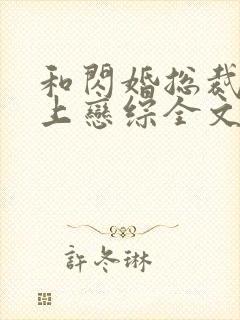 和閃婚總裁
上戀綜全文
許冬琳